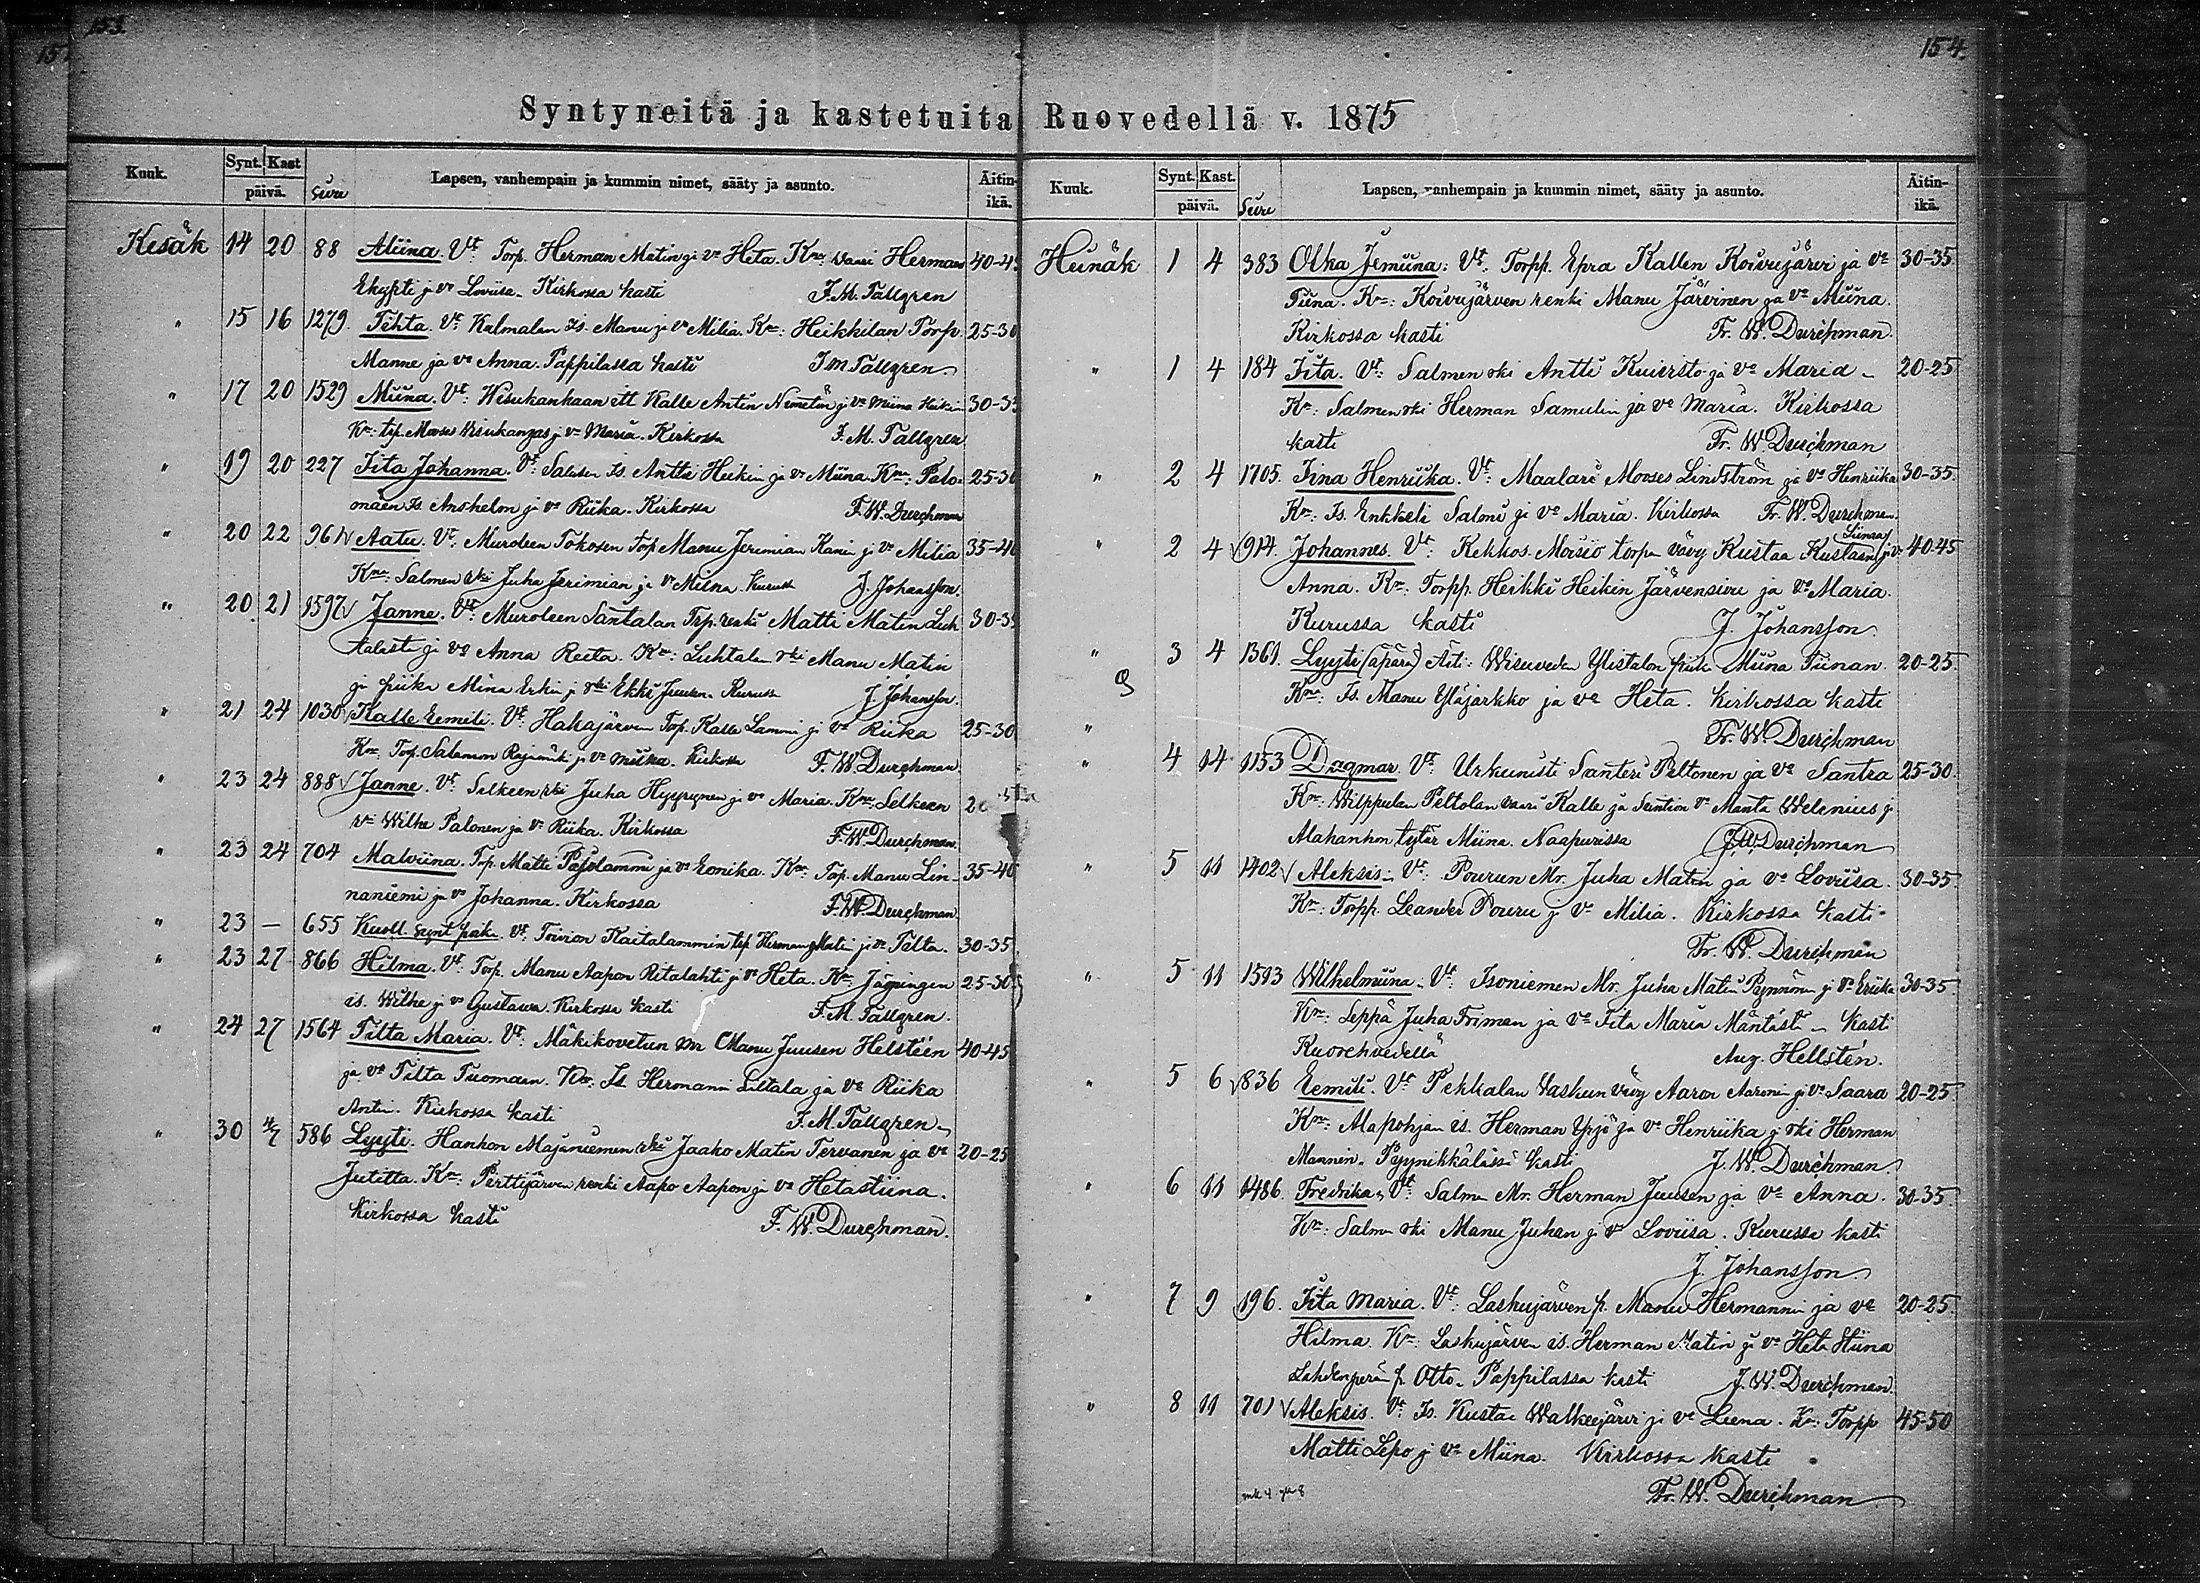 153.
15
154.
Syntyneitä ja kastetuita Ruovedellä v. 1875
Kuuk. Synt. Kast päivä. Sivu Lapsen, vanhempain ja kummin nimet, sääty ja asunto. Äitin-ikä.
Kesäk 14 20 88 Aliina. Vt Torp. Herman Matin ja vo Heta. Kmi: vaari Herman 40-45
Ekypti ja vo Loviisa. Kirkossa kasti F. M. Tallgren
" 15 16 1279 Tekta. Vt Kalmalan Is. Manu ja vo Milia. Km: Heikkilan Torp. 25-30
Manne ja vo Anna. Pappilassa kasti F M Tallgren
" 17 20 1529 Miina. Vt: Wisukankaan itt Kalle Antin ja vo Miina 30-35
Km: trp. Mooses Wisukangas ja vo Maria. Kirkossa F. M. Tallgren
" 19 20 227 Iita Johanna. Vt: Is. Antti Heikin ja vo Miina. Km: Palo- 25-30
mäen Is Anshelm ja vo Riika. Kirkossa F. W. Durchman
" 20 22 961 Aatu. Vt: Muroleen Tokosen Torp Manu Jeremian ja vo Milia 35-40
Km: Salmen rki Juha Jerimian ja vo Miina. Kurussa J. Johansson.
" 20 21 1597 Janne. Vt: Muroleen Santalan Trp. renki Matti Matin Luh 30-35
talasti ja vo Anna Reeta. Km: Luhtalan rki Manu Matin
ja piika Miina Erkin ja rki Erkki Juusen. Kurussa J. Johansson.
" 21 24 1030 Kalle Eemili. Vt. Hakajärven Torp. Kalle Lammi ja vo Riika 25-30
Km Torp. Salamon Rajamäki ja vo Miika. Kirkossa F. W. Durchman.
" 23 24 888 Janne. Vt Selkeen rki Juha Hyyrynen ja vo Maria. Km: Selkeen
Wilhe Palonen ja vo Riika. Kirkossa F. W. Durchman.
" 23 24 704 Malviina. Trp. Matti Pajulammi ja vo Eenika. Km: Torp. Manu Lin- 35-40
naniemi ja vo Johanna. Kirkossa F. W. Durchman.
" 23 — 655 Kuoll. synt poika. Vt: Toivion Kaitalammin trp Herman Matin ja vo Tilta. 30-35
" 23 27 866 Hilma. Vt. Torp. Manu Aapon Ritalahti ja vo Heta. Km: Jäminigen 25-30
is. Wilhe ja vo Gustava. Kirkossa kasti F. M. Tallgren.
" 24 27 1564 Tilta Maria. Vt: Mäkikovetun mr Manu Juusen Helsteen 40-45
ja vo Tilta Tuomaan. Km: Is. Hermanni Littala ja vo Riika
Antin. Kirkossa kasti F. M. Tallgren
" 30 4/7 586 Lyyti. Hankon Majaniemen rki Jaako Matin Tervanen ja vo 20-25
Jutitta. Km: Perttijärven renki Aapo Aapon ja vo Hetastiina.
Kirkossa kasti F. W. Durchman.
Kuuk. Synt. Kast. päivä. Sivu Lapsen, vanhempain ja kummin nimet, sääty ja asunto. Äitin-ikä.
Heinäk 1 4 383 Olka Jemiina: Vt. Torpp. Epra Kallen Koivujärvi ja vo 30-35
Tiina. Km: Koivujärven renki Manu Järvinen ja vo Miina.
Kirkossa kasti Fr. W. Durchman.
" 1 4 184 Iita. Vt: Salmen rki Antti Kuiristo ja vo Maria 20-25
Km: Salmen rki Herman Samulin ja vo Maria. Kirkossa
kasti Fr. W. Durchman
" 2 4 1705. Iina Henriika. Vt: Maalari Mooses Lindström ja vo Henriika 30-35
Km: Is. Enkkeli Salmi ja vo Maria. Kirkossa Fr. W. Durchman.
" 2 4 914. Johannes. Vt: Kekkos. Moisio torpan vävy Kustaa Kustaan ja vo 40-45
Anna. Km: Torpp. Heikki Heikin Järvensivu ja vo Maria.
Kurussa kasti J. Johansson.
" 3 4 1361. Lyyti (äpärä) Äiti: Wisuveden Ylistalon piika Miina Tiinan. 20-25
Km: Is. Manu Yläjarkko ja vo Heta. Kirkossa kasti
" Fr. W. Durchman
" 4 14 1153 Dagmar Vt: Urkunisti Santeri Peltonen ja vo Santra 25-30
Km: Wilppulan Peltolan vaari Kalle ja Suntion vo Manta Welenius ja
Alahanhon tytär Miina. Naapurissa F. W. Durchman
" 5 11 1402 Aleksis. Vt: Pourun Mr. Juha Matin ja vo Loviisa. 30-35
Km: Torpp. Leander Pouru ja vo Milia. Kirkossa kasti
Fr. W. Durchman
" 5 11 1593 Wilhelmiina. Vt. Isoniemen Mr. Juha Matin Pynnönen ja vo Eriika 30-35
Km: Leppä Juha Friman ja vo Iita Maria Mäntästä kasti
Ruovehvedellä Aug. Hellstén.
" 5 6 836 Eemili. Vt Pekkalan Vaskuun vävy Aaron Aaronin ja vo Saara 20-25
Km: Alapohjan is. Herman Yrjö ja vo Henriika ja rki Herman
Mannin. Pyynikkälässä kasti F. W. Durchman
" 6 11 1486. Fredrika. Vt: Salmen Mr. Herman Juusen ja vo Anna. 30-35
Km: Salmen rki Manu Juhan ja vo Loviisa. Kurussa kasti
J. Johansson.
" 7 9 196. Iita Maria. Vt: Laskujärven p. Manu Hermannin ja vo 20-25
Hilma. Km: Laskujärven is. Herman Matin ja vo Heta Stiina
Lahdenperän p. Otto. Pappilassa kasti F. W. Durchman
" 8 11 701 Aleksis. Vt. Is. Kustaa Walkeejärvi ja vo Leena. Km: Torpp 45-50
Matti Lepo ja vo Miina. Kirkossa kasti
mk 4 yk 8 Fr. W. Durchman